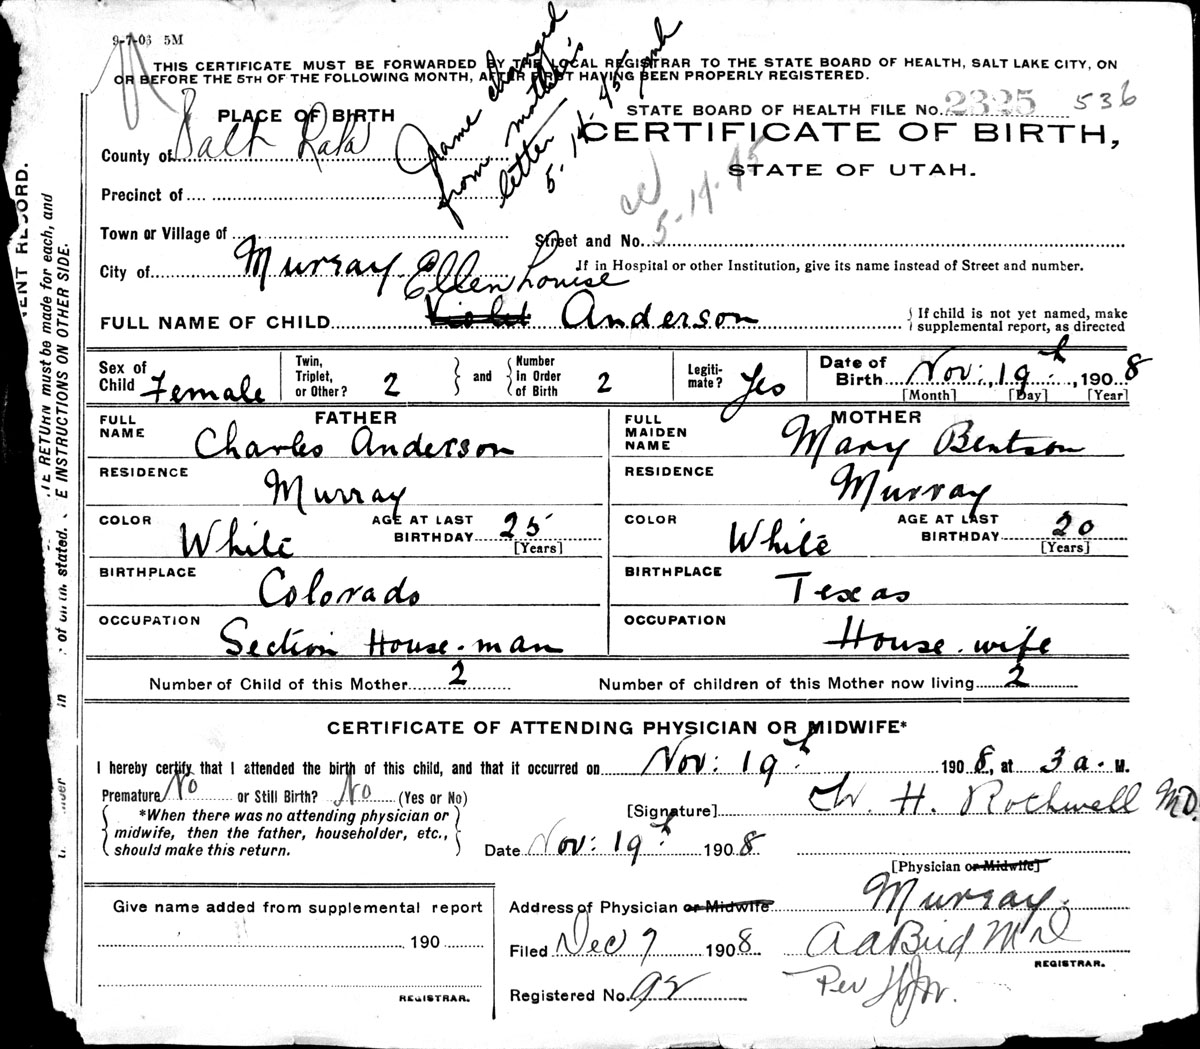 9-7-03 5M
THIS CERTIFICATE MUST BE FORWARDED BY THE LOCAL REGISTRAR TO THE STATE BOARD OF HEALTH, SALT LAKE CITY, ON
OR BEFORE THE 5TH OF THE FOLLOWING MONTH, AFTER FIRST HAVING BEEN PROPERLY REGISTERED.
Name changed
from mother's
letter
5-14-45
PLACE OF BIRTH
STATE BOARD OF HEALTH FILE No. 2325 536
CERTIFICATE OF BIRTH,
STATE OF UTAH.
5-14-45
County of Salt Lake
Precinct of
Town or Village of
Street and No.
City of Murray
If in Hospital or other Institution, give its name instead of Street and number.
Ellen Louise
FULL NAME OF CHILD Violet Anderson
If child is not yet named, make
supplemental report, as directed
Sex of Child Female
Twin, Triplet, or Other? 2
and
Number in Order of Birth 2
Legitimate? Yes
Date of Birth Nov: 19th, 1908
[Month] [Day] [Year]
FATHER
FULL NAME Charles Anderson
RESIDENCE Murray
COLOR White
AGE AT LAST BIRTHDAY 25 [Years]
BIRTHPLACE Colorado
OCCUPATION Section House-man
MOTHER
FULL MAIDEN NAME Mary Bentson
RESIDENCE Murray
COLOR White
AGE AT LAST BIRTHDAY 20 [Years]
BIRTHPLACE Texas
OCCUPATION House-wife
Number of Child of this Mother 2
Number of children of this Mother now living 2
CERTIFICATE OF ATTENDING PHYSICIAN OR MIDWIFE*
I hereby certify that I attended the birth of this child, and that it occurred on Nov: 19th 1908, at 3 a. M.
Premature No or Still Birth? No (Yes or No)
*When there was no attending physician or
midwife, then the father, householder, etc.,
should make this return.
[Signature] W. H. Rothwell MD.
Date Nov: 19th 1908
[Physician or Midwife]
Give name added from supplemental report
190
REGISTRAR.
Address of Physician or Midwife Murray
Filed Dec 7 1908
A A Bird M D
REGISTRAR.
Registered No. 92
Per
NENT RECORD.
TE RETURN must be made for each, and
E INSTRUCTIONS ON OTHER SIDE.
stated.
in